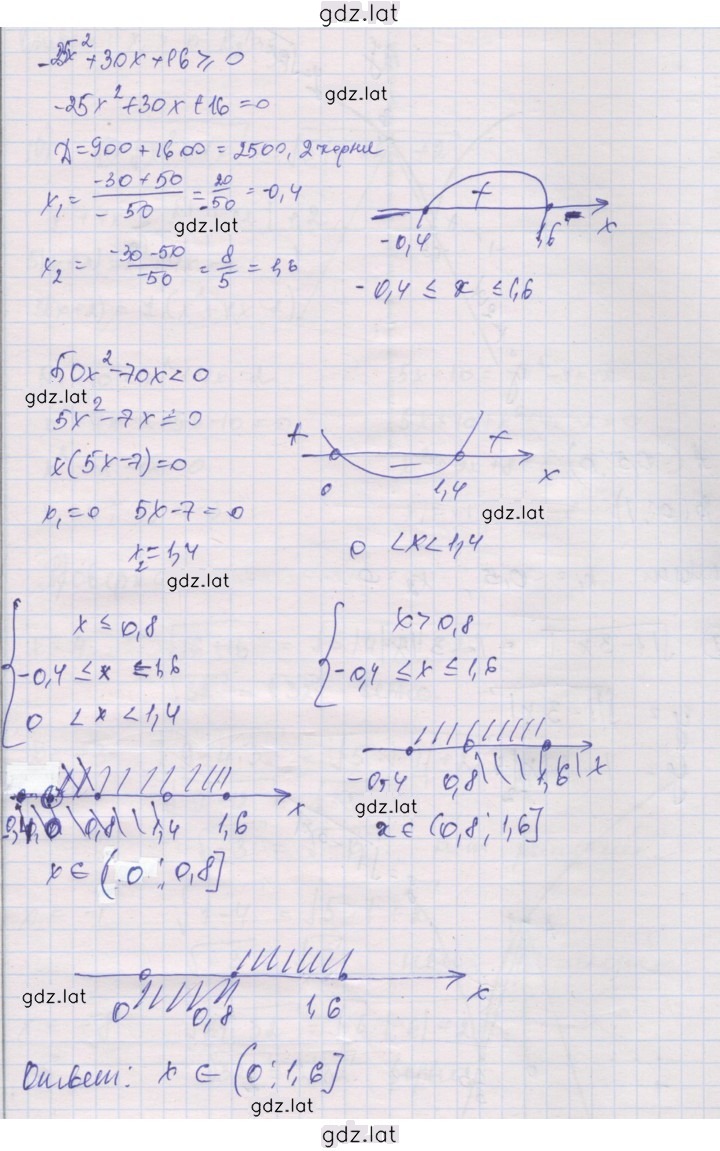 gdz.lat
-25x²+30x+16≥0
-25x²+30x+16=0
gdz.lat
Д=900+1600=2500, 2 корня
x₁= (-30+50)/(-50) = 20/-50 = -0,4
gdz.lat
x₂ = (-30-50)/(-50) = 8/5 = 1,6
+
-0,4 1,6 x
-0,4 ≤ x ≤ 1,6
50x²-70x<0
gdz.lat
5x²-7x=0
x(5x-7)=0
x₁=0 5x-7=0
x₂=1,4
gdz.lat
+ - +
0 1,4 x
gdz.lat
0 <x<1,4
x ≤ 0,8
-0,4 ≤ x ≤ 1,6
0 < x < 1,4
x > 0,8
-0,4 ≤ x ≤ 1,6
-0,4 0,8 1,6 x
gdz.lat
x ∈ (0,8; 1,6]
0 0,8 1,4 1,6 x
x ∈ (0; 0,8]
0 0,8 1,6 x
gdz.lat
Ответ: x ∈ (0; 1,6]
gdz.lat
gdz.lat